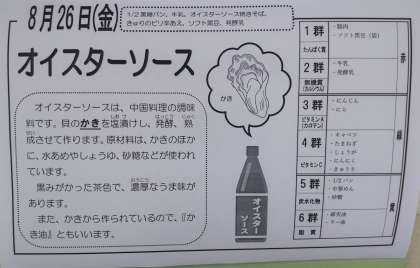 8月26日(金)
1/2黒糖パン、牛乳、オイスターソース焼きそば、
きゅうりのピリ辛あえ、ソフト黒豆、発酵乳
オイスターソース
オイスターソースは、中国料理の調味
料です。貝のかきを塩漬けし、発酵、熟
成させて作ります。原材料は、かきのほか
に、水あめやしょうゆ、砂糖などが使われ
ています。
黒みがかった茶色で、濃厚なうま味が
あります。
また、かきから作られているので、『か
き油』ともいいます。
かき
オイスター
ソース
1群
たんぱく質
・豚肉
・ソフト黒豆
2群
無機質
(カルシウム)
・牛乳
・発酵乳
3群
ビタミンA
(カロテン)
・にんじん
・にら
4群
ビタミンC
・キャベツ
・たまねぎ
・しょうが
・にんにく
・きゅうり
5群
炭水化物
・1/2パン
・中華めん
・砂糖
6群
脂質
・ラー油
赤
緑
黄